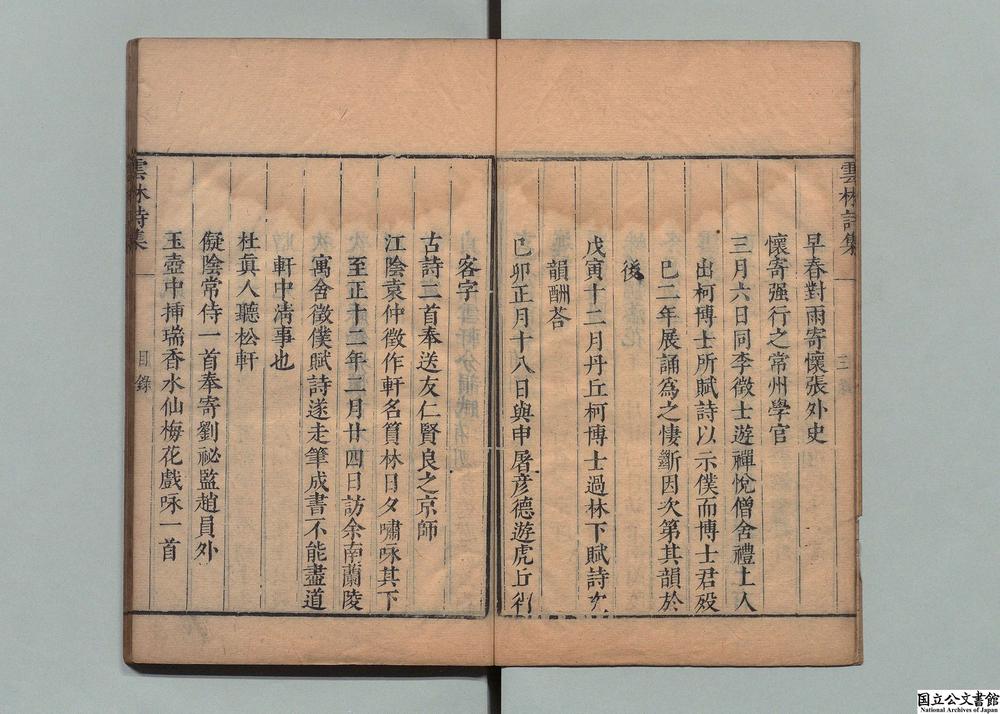 雲林詩集
三
早春對雨寄懷張外史
懷寄强行之常州學官
三月六日同李徵士遊禪悅僧舍禮上人
出柯博士所賦詩以示僕而博士君歿
已二年展誦爲之悽斷因次第其韻於
後
戊寅十二月丹丘柯博士過林下賦詩次
韻酬荅
已卯正月十八日與申屠彦德遊虎丘得
客字
古詩二首奉送友仁賢良之京師
江陰袁仲徵作軒名篔林日夕嘯咏其下
至正十二年二月廿四日訪余南蘭陵
寓舍徵僕賦詩遂走筆成書不能盡道
軒中淸事也
杜眞人聽松軒
儗陰常侍一首奉寄劉祕監趙員外
玉壺中揷瑞香水仙梅花戲咏一首
雲林詩集
目錄
国立公文書館
National Archives of Japan